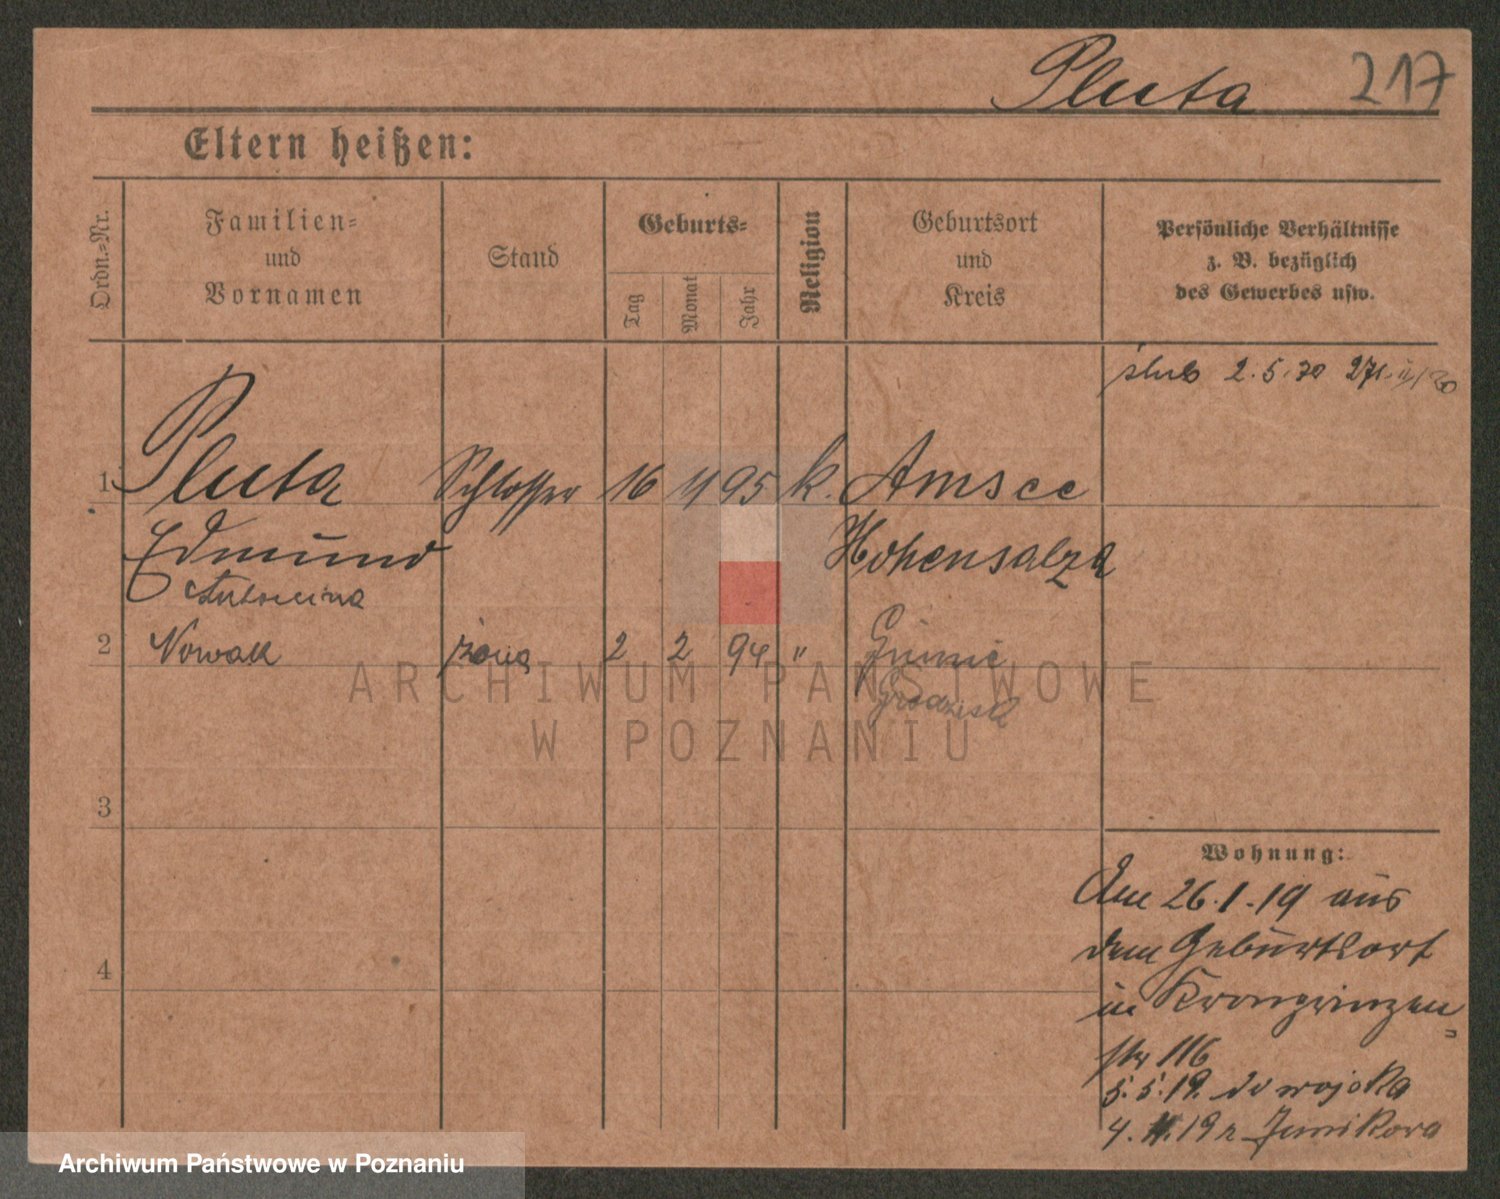 Pluta 217
Eltern heißen:
Ordn.=Nr.
Familien=
und
Vornamen
Stand
Geburts=
Tag
Monat
Jahr
Religion
Geburtsort
und
Kreis
Persönliche Verhältnisse
z. B. bezüglich
des Gewerbes usw.
ślub 2.5.20
1 Pluta Schlosser 16 11 95 k. Amsee
Edmund Hohensalza
Antonina
2 Nowak żona 2 2 94 "
Grodzisk
3
4
Wohnung:
Am 26.1.19 aus
dem Geburtsort
in Kronprinzen=
str 116
5.5.19. do wojska
4. 19 z Junikowa
ARCHIWUM PAŃSTWOWE
W POZNANIU
Archiwum Państwowe w Poznaniu